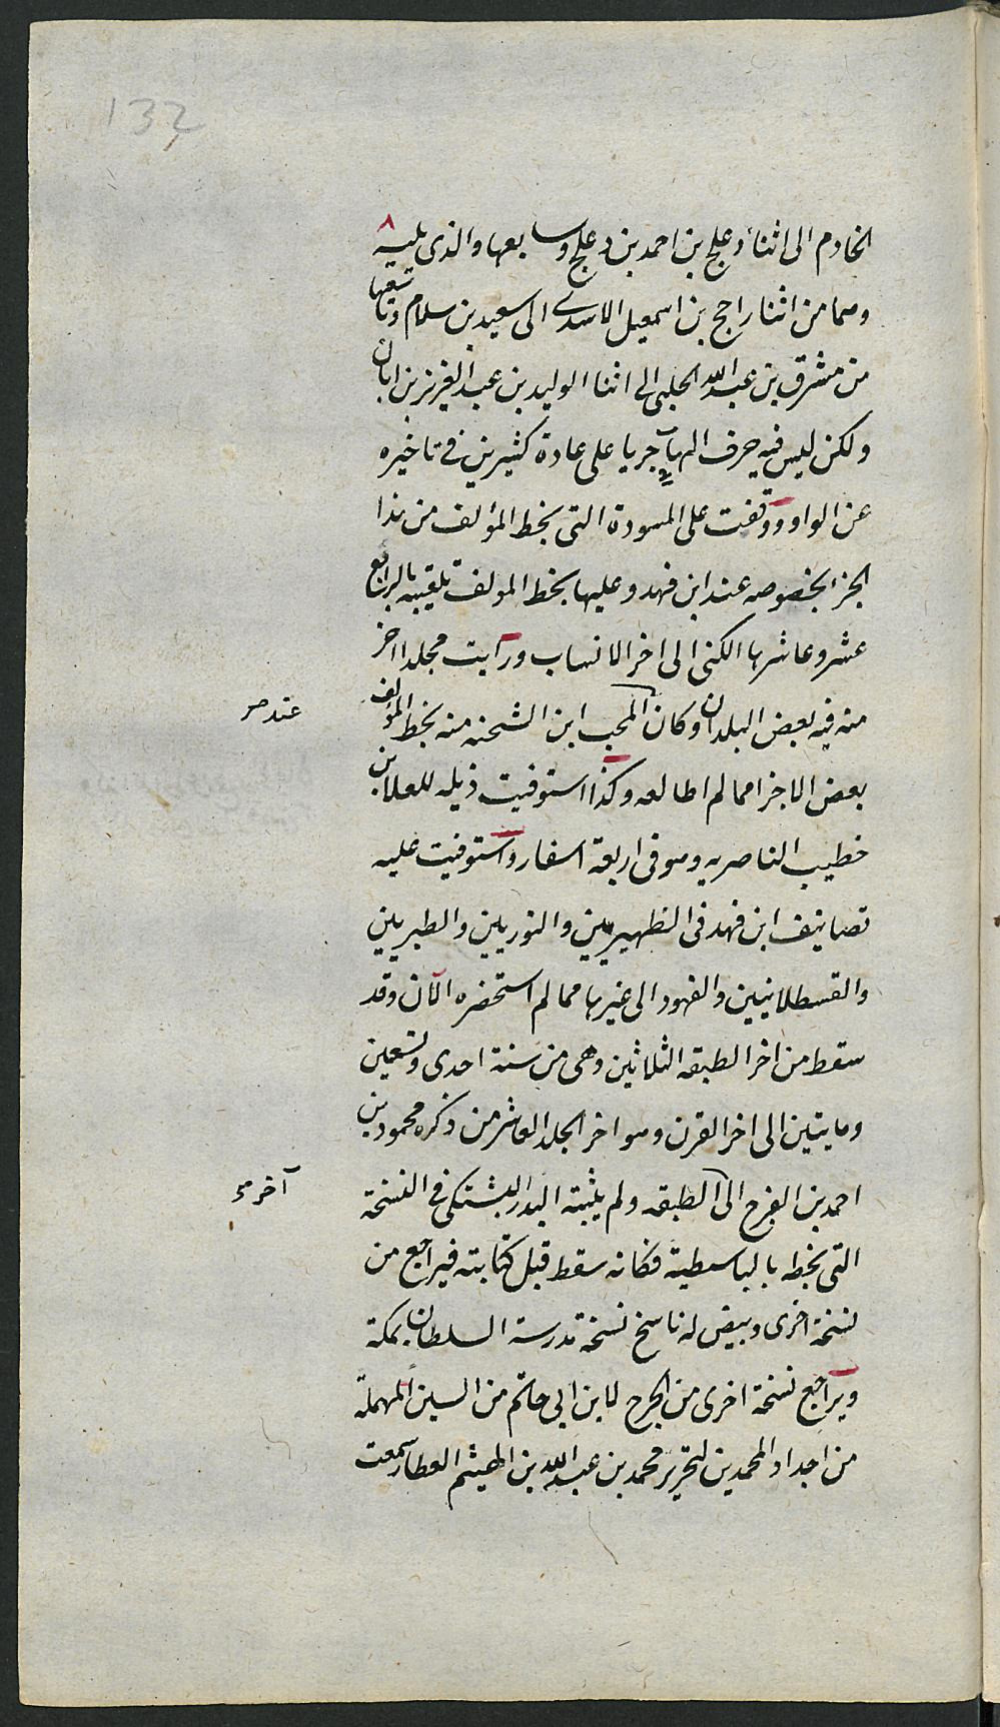 132
الخادم الى اثناء دعلج بن احمد بن دعلج وسابعها والذى يليه ٨
وهما من اثنا راجح بن اسمعيل الاسدى الى سعيد بن سلام وتاسعها
من مشرق بن عبد الله الحلبى الى اثنا الوليد بن عبد العزيز بن ابان
ولكن ليس فيه حرف الهآ جريا على عادة كثيرين فى تاخيره
عن الواو ووقفت على المسودة التى بخط المؤلف من هذا
الجز بخصوصه عند ابن فهد وعليها بخط المولف تلقيبه بالرابع
عشر وعاشرها الكنى الى اخر الانساب ورأيت مجلدا اخر
منه فيه بعض البلدان وكان المحب ابن الشحنه منه بخط المؤلف
عند صر
بعض الاجزا مما لم اطالعه وكذا استوفيت ذيله للعلا بن
خطيب الناصريه وهو فى اربعة اسفار واستوفيت عليه
تصانيف ابن فهد فى الظهيريين والنوريين والطبريين
والقسطلانيين والفهود الى غيرها مما لم استحضره الآن وقد
سقط من اخر الطبقه الثلاثين وهى من سنة احدى وتسعين
ومايتين الى اخر القرن وهو اخر المجلد العاشر من ذكره محمود بن
احمد بن الفرج الى الطبقه ولم يثبته البدر البشتكى فى النسخة
آخر صر
التى بخطه بالباسطية فكانه سقط قبل كتابته فيراجع من
نسخة اخرى وبيض له ناسخ نسخة مدرسة السلطان بمكة
ويراجع نسخة اخرى من الجرح لابن ابى حاتم من السين المهملة
من اجداد المحمدين لتحرير محمد بن عبد الله بن الهيثم العطار سمعت